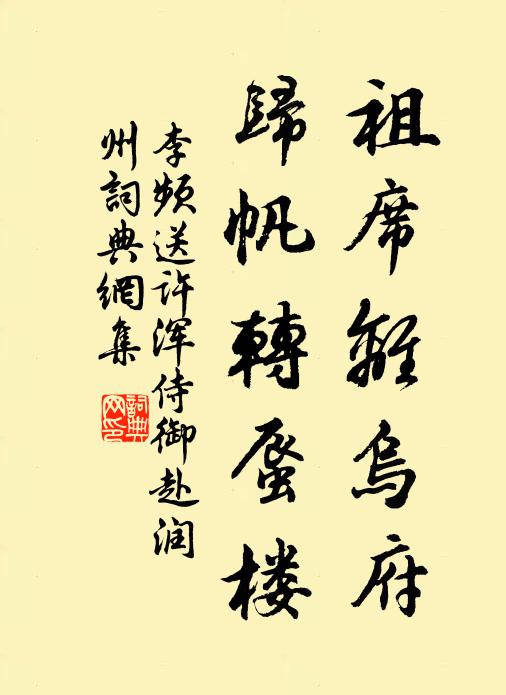 祖席離烏府
歸帆轉蜃楼
李频送许浑侍御赴润
州詞典網集
詞典
网印